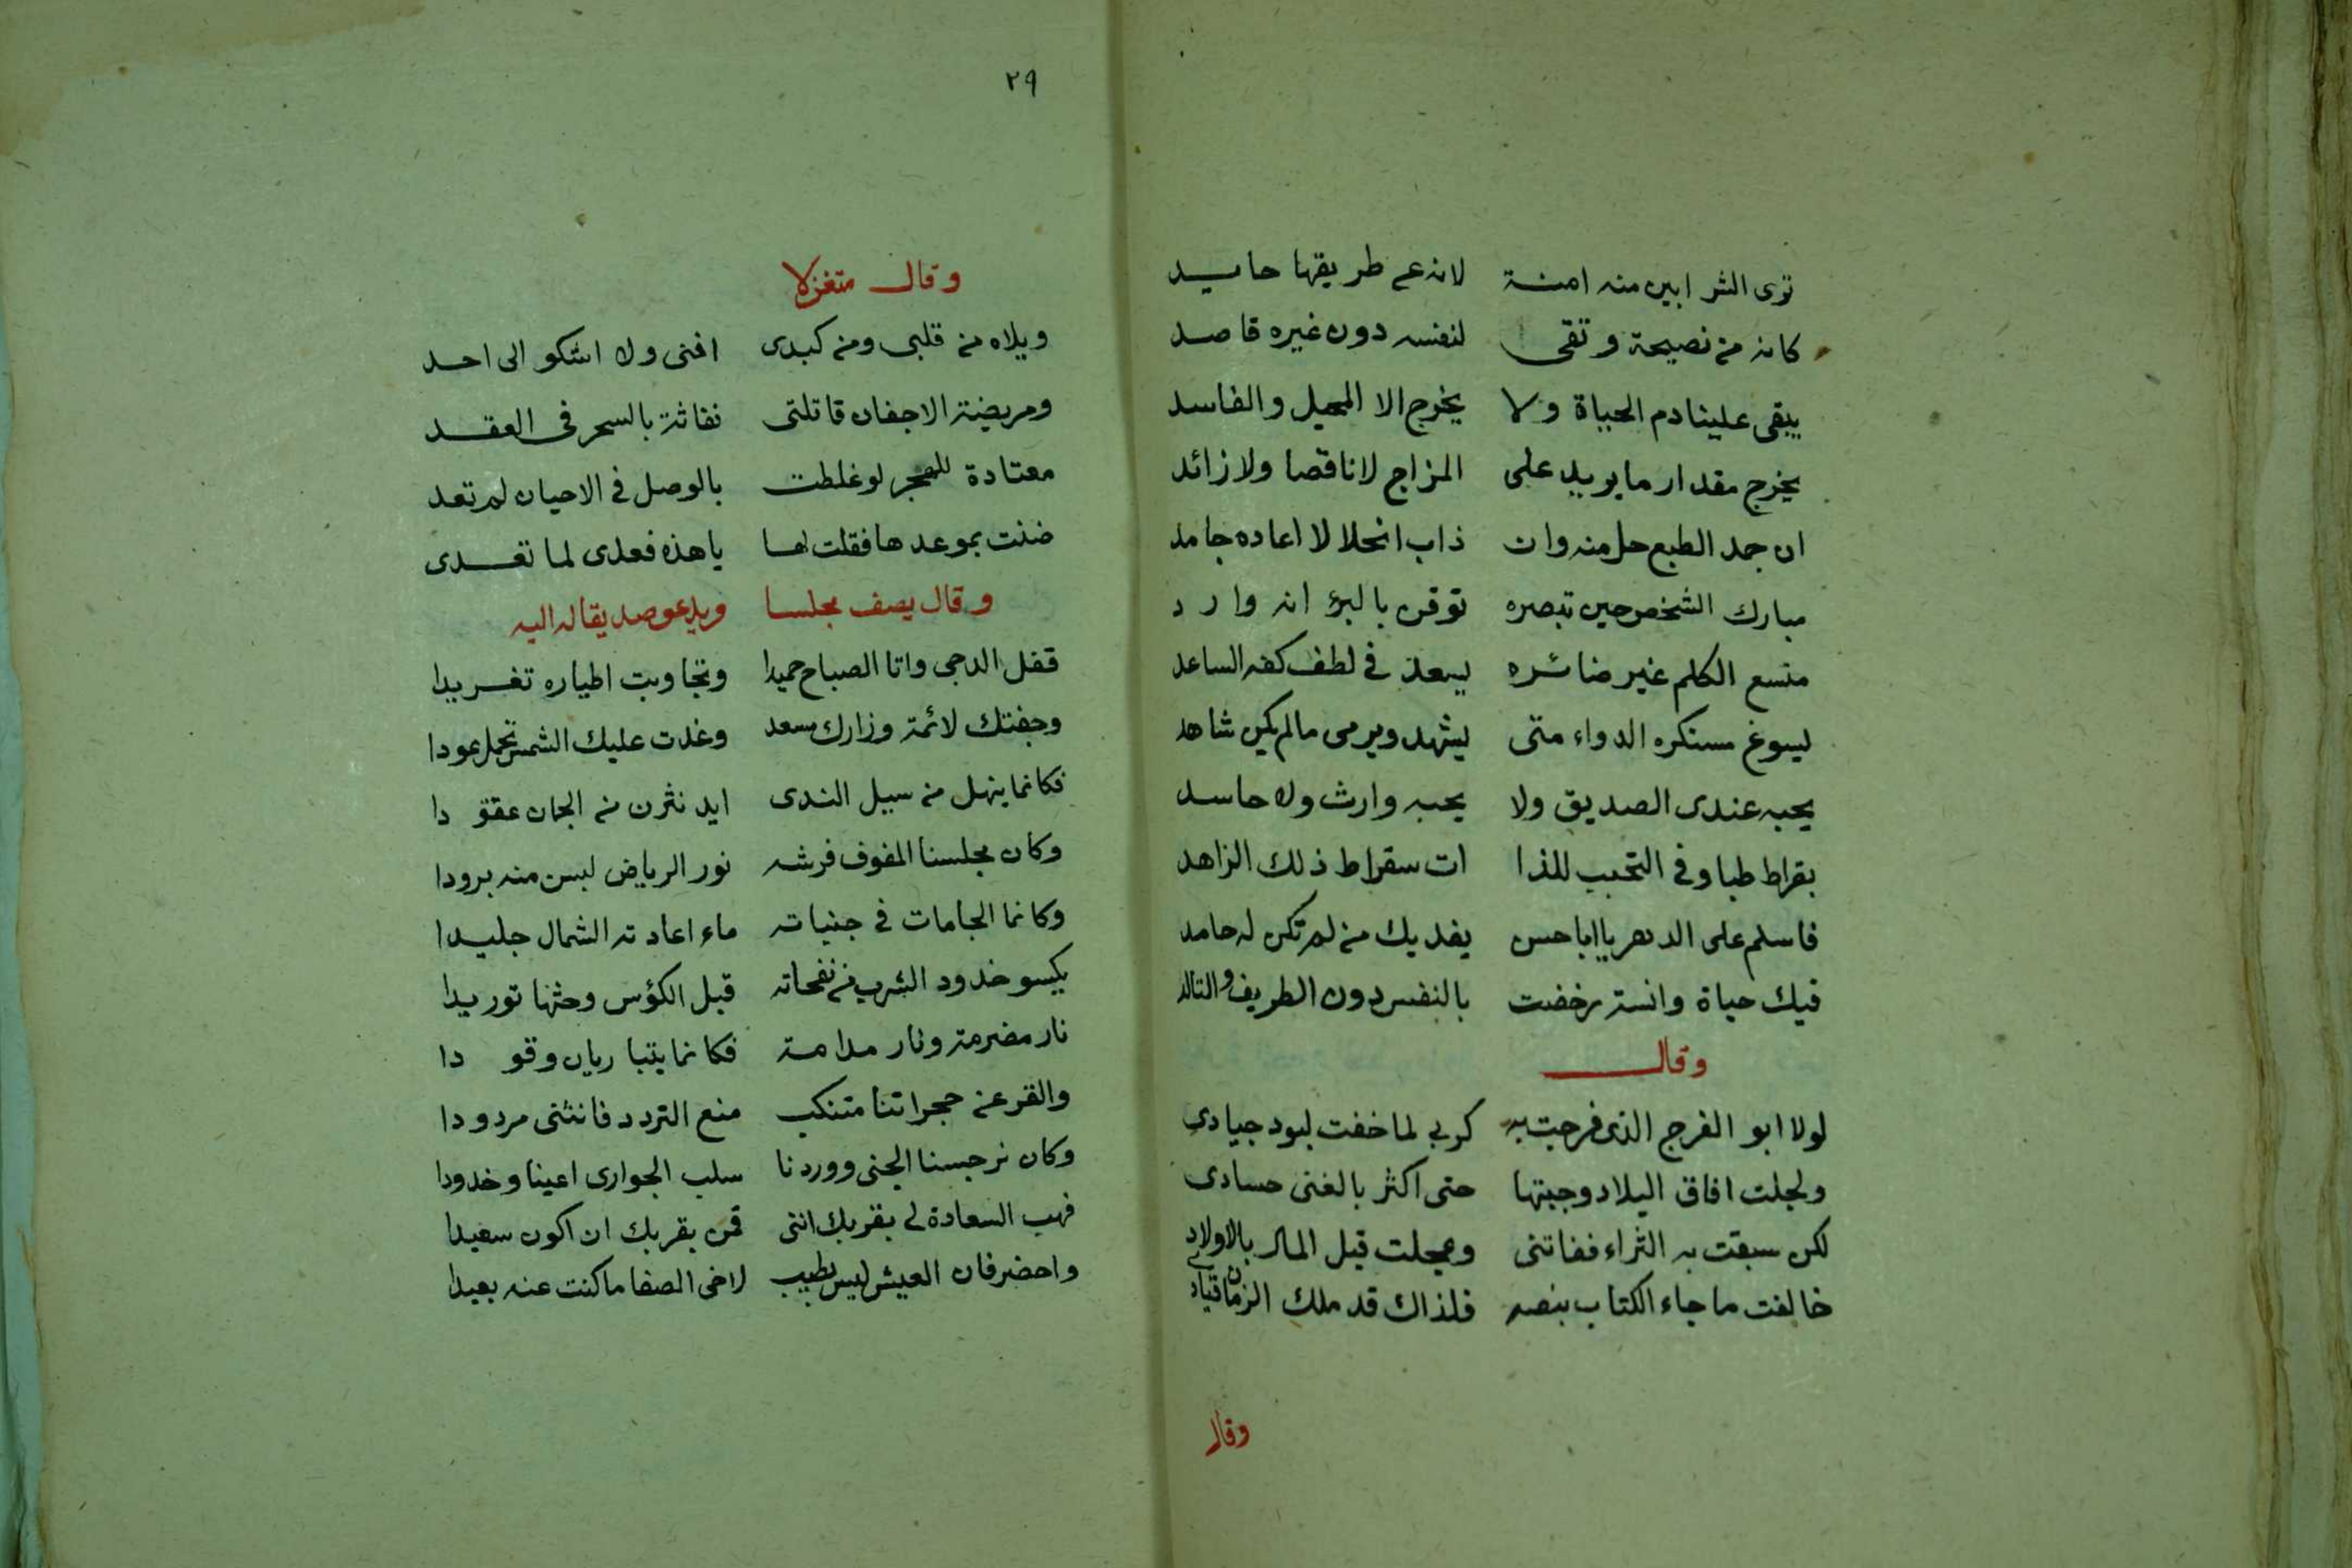 ترى الشرابين منه امنة لانه عے طريقها حايد
كانه من نصيحة وتقى لنفسه دون غيره قاصد
يبقى علينا دم الحياة ولا يخرج الا المحيل والفاسد
يخرج مقدار ما يريد على المزاج لا ناقصا ولا زائد
ان جمد الطبع حل منه وان ذاب انحلالا اعاده جامد
مبارك الشخص حين تبصره توقن بالبرؤ انه وارد
متسع الكلم غير ضائره يسعد في لطف كفه الساعد
يسوغ مستكره الدواء متى يشهد ويرمى مالم يكن شاهد
يحبه عندى الصديق ولا يحبه وارث ولا حاسد
بقراط طبا وفى التحبب للذا ات سقراط ذلك الزاهد
فاسلم على الدهر يا ابا حسن يفديك من لم تكن له حامد
فيك حياة وانسة رخضت بالنفس دون الطريف والتالد
وقال
لولا ابو الفرج الذى فرجت به كربى لما خفت لبود جيادى
ولجلت افاق البلاد وجبتها حتى اكثر بالغنى حسادى
لكن سبقت به الثراء ففاتنى وعجلت قبل المال بالاولاد
خالفت ما جاء الكتاب بنصه فلذاك قد ملك الزمان قيادى
وقال
٢٩
وقال متغزلا
ويلاه من قلبى ومن كبدى افنى ولا اشكو الى احد
ومريضة الاجفان قاتلتى نفاثة بالسحر فى العقد
معتادة للهجر لو غلطت بالوصل فى الاحيان لم تعد
ضنت بموعدها فقلت لها يا هذه فعدى لما تعدى
وقال يصف مجلسا ويدعو صديقا له اليه
قفل الدجى واتا الصباح حميدا وتجاوبت اطياره تغريدا
وجفتك لائمة وزارك مسعد وغدت عليك الشمس تحمل عودا
فكانما ينهل من سيل الندى ايد نثرن من الجمان عقودا
وكان مجلسنا المفوف فرشه نور الرياض لبسن منه برودا
وكانما الجامات في جنباته ماء اعادته الشمال جليدا
يكسو خدود الشرب من نفحاته قبل الكؤس وحثها توريدا
نار مضرمة ونار مدامة فكانما يتباريان وقودا
والقر عن حجراتنا متنكب منع التردد فانثنى مردودا
وكان نرجسنا الجنى ووردنا سلب الجوارى اعينا وخدودا
فهب السعادة لى بقربك اننى قمن بقربك ان اكون سعيدا
واحضر فان العيش ليس بطيب لاخى الصفا ما كنت عنه بعيدا